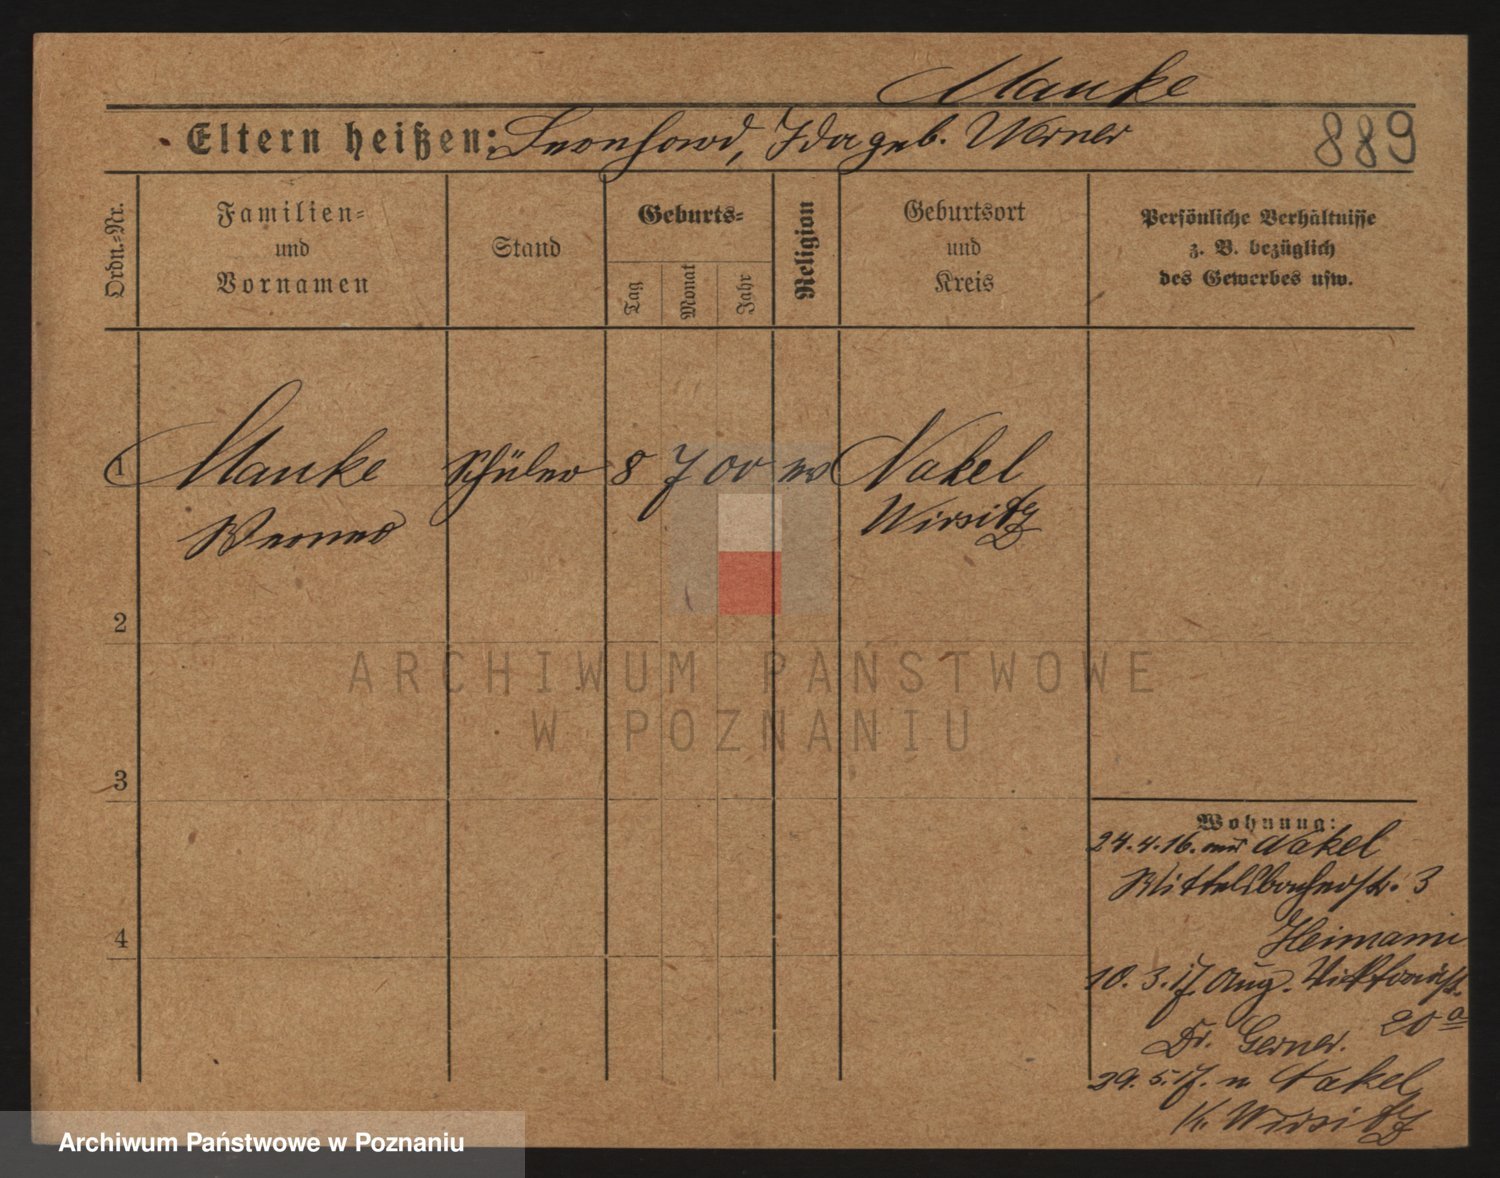 Manke
Eltern heißen: Leonhard, Ida geb. Werner
889
Ordn.-Nr.
Familien-
und
Vornamen
Stand
Geburts-
Tag
Monat
Jahr
Religion
Geburtsort
und
Kreis
Persönliche Verhältnisse
z. B. bezüglich
des Gewerbes usw.
1 Manke Schüler 8 7 00 ev Nakel
Werner Wirsitz
2
3
4
Wohnung:
24.4.16. aus Nakel
3
Heimann
10.3.17. Aug. Viktoriastr.
20 a
Dr. Gerner.
29.5.17. n Nakel
K. Wirsitz
ARCHIWUM PAŃSTWOWE
W POZNANIU
Archiwum Państwowe w Poznaniu